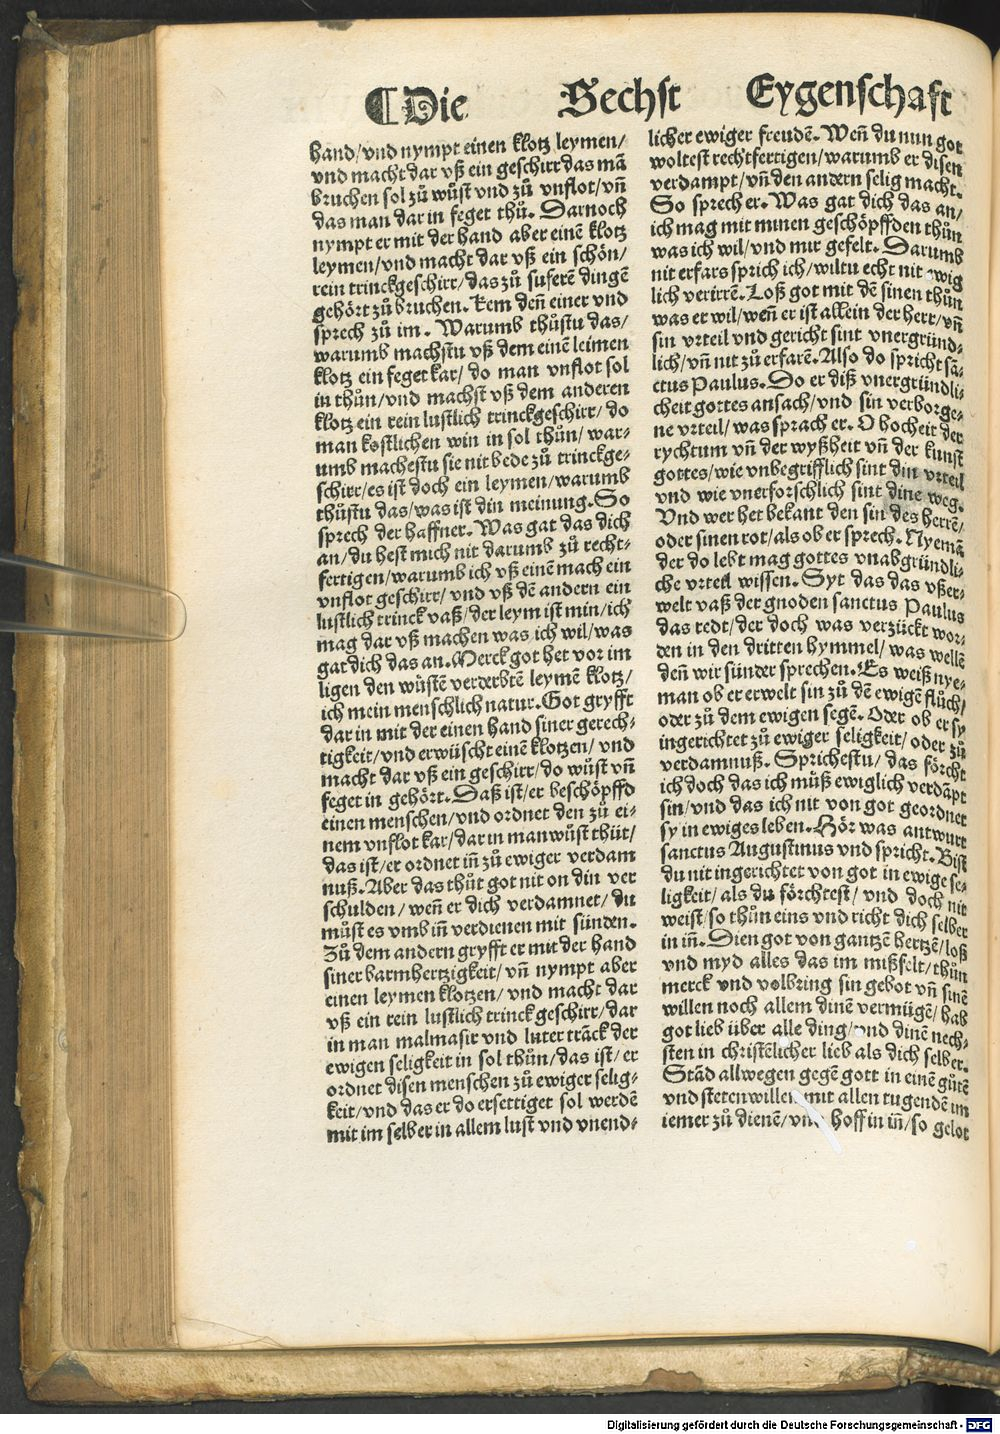 ¶Die Sechst Eygenschaft
hand/vnd nympt einen klotz leymen/
vnd macht dar vß ein geschirr das mā
bruchen sol zů wůst vnd zů vnflot/vñ
das man dar in feget thů. Darnoch
nympt er mit der hand aber einē klotz
leymen/vnd macht dar vß ein schön/
rein trinckgeschirr/das zů suferē dingē
gehört zů bruchen. Kem deñ einer vnd
sprech zů im. Warumb thůstu das/
warumb machstu vß dem einē leimen
klotz ein feget kar/do man vnflot sol
in thůn/vnd machst vß dem anderen
klotz ein rein lustlich trinckgeschirr/do
man kostlichen win in sol thůn/war-
umb machestu sie nit bede zů trinckge-
schirr/es ist doch ein leymen/warumb
thůstu das/was ist din meinung. So
sprech der haffner. Was gat das dich
an/du hest mich nit darumb zů recht-
fertigen/warumb ich vß einē mach ein
vnflot geschirr/vnd vß dē andern ein
lustlich trinck vaß/der leym ist min/ich
mag dar vß machen was ich wil/was
gat dich das an. Merck got het vor im
ligen den wůstē verderbtē leymē klotz/
ich mein menschlich natur. Got gryfft
dar in mit der einen hand siner gerech-
tigkeit/vnd erwüscht einē klotzen/vnd
macht dar vß ein geschirr/do wůst vñ
feget in gehört. Daß ist/er beschöpffd
einen menschen/vnd ordnet den zů ei-
nem vnflot kar/dar in man wůst thůt/
das ist/er ordnet iñ zů ewiger verdam
nuß. Aber das thůt got nit on din ver
schulden/weñ er dich verdamnet/du
můst es vmb iñ verdienen mit sünden.
Zů dem andern gryfft er mit der hand
siner barmhertzigkeit/vñ nympt aber
einen leymen klotzen/vnd macht dar
vß ein rein lustlich trinck geschirr/dar
in man malmasir vnd luter trāck der
ewigen seligkeit in sol thůn/das ist/er
ordnet disen menschen zů ewiger selig-
keit/vnd das er do ersettiget sol werdē
mit im selber in allem lust vnd vnend-
licher ewiger freudē. Weñ du nun got
woltest rechtfertigen/warumb er disen
verdampt/vñ den andern selig macht.
So sprech er. Was gat dich das an/
ich mag mit minen geschöpffden thůn
was ich wil/vnd mir gefelt. Darumb
nit erfars sprich ich/wiltu echt nit ewig
lich verirrē. Loß got mit dē sinen thůn
was er wil/weñ er ist allein der herr/vñ
sin vrteil vnd gericht sint vnergründ-
lich/vñ nit zů erfarē. Also do spricht sā-
ctus Paulus. Do er diß vnergründli-
cheit gottes ansach/vnd sin verborge-
ne vrteil/was sprach er. O hocheit der
rychtum vñ der wyßheit vñ der kunst
gottes/wie vnbegrifflich sint din vrteil
vnd wie vnerforschlich sint dine weg.
Vnd wer het bekant den sin des herrē/
oder sinen rot/als ob er sprech. Nyemā
der do lebt mag gottes vnabgründli-
che vrteil wissen. Syt das das vßer-
welt vaß der gnoden sanctus Paulus
das redt/der doch was verzückt wor-
den in den dritten hymmel/was wellē
deñ wir sünder sprechen. Es weiß nye-
man ob er erwelt sin zů dē ewigē flůch/
oder zů dem ewigen segē. Oder ob er sy
ingerichtet zů ewiger seligkeit/oder zů
verdamnuß. Sprichestu/das förcht
ich doch das ich můß ewiglich verdāpt
sin/vnd das ich nit von got geordnet
sy in ewiges leben. Hör was antwurt
sanctus Augustinus vnd spricht. Bist
du nit ingerichtet von got in ewige se-
ligkeit/als du förchtest/vnd doch nit
weist/so thůn eins vnd richt dich selber
in iñ. Dien got von gantzē hertzē/loß
vnd myd alles das im mißfelt/thůn
merck vnd volbring sin gebot vñ sinē
willen noch allem dinē vermügē/hab
got lieb über alle ding/vnd dinē nech-
sten in christēlicher lieb als dich selber.
Stād allwegen gegē gott in einē gůtē
vnd steten willen mit allen tugendē im
iemer zů dienē/vnd hoff in iñ/so gelot
Digitalisierung gefördert durch die Deutsche Forschungsgemeinschaft - DFG